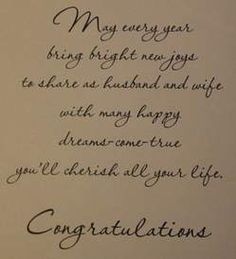 May every year
bring bright new joys
to share as husband and wife
with many happy
dreams-come-true
you'll cherish all your life.
Congratulations